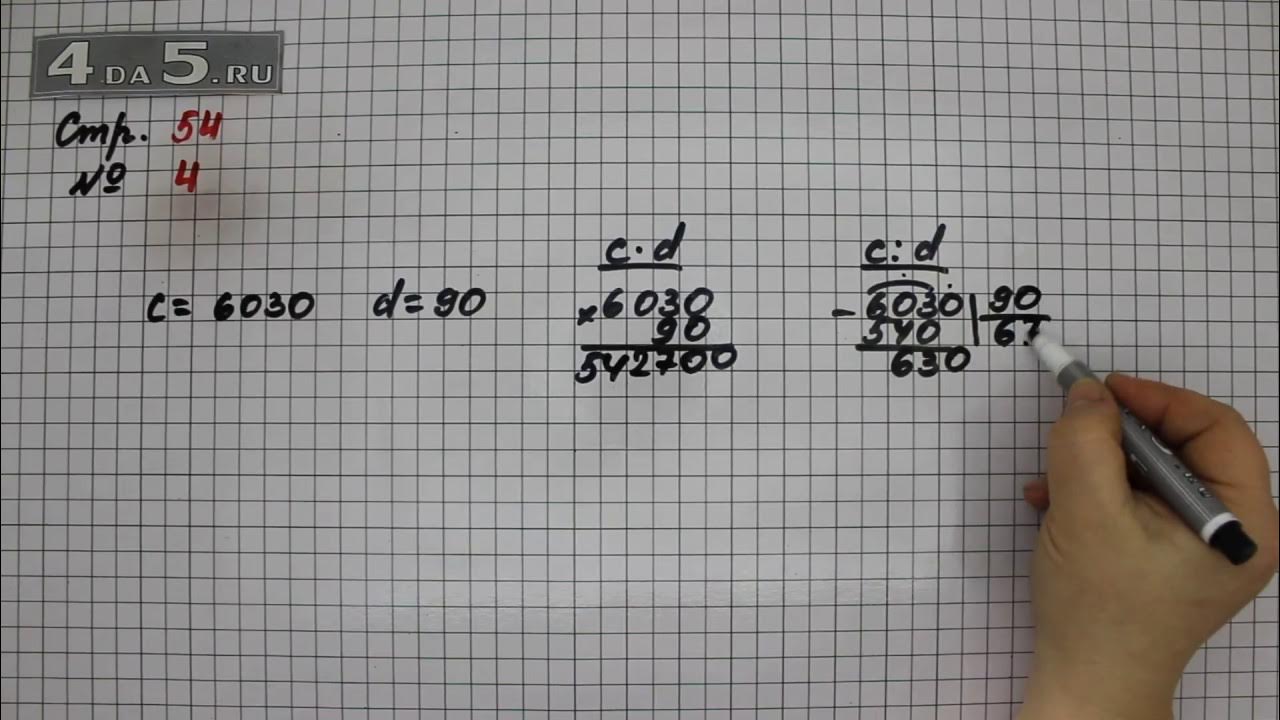 4DA5.RU
Стр. 54
№ 4
c = 6030 d = 90
c · d
× 6030
90
542700
c : d
- 6030 | 90
540 67
630